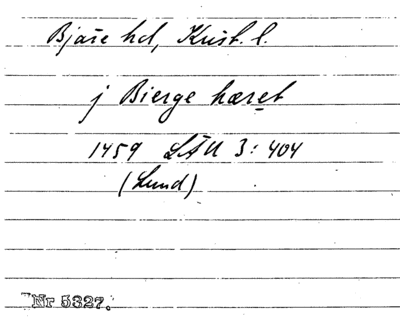 Bjäre hd, Krist. l.
j Bierge hæret
1459 LÄU 3: 404
(Lund)
Nr 5327.